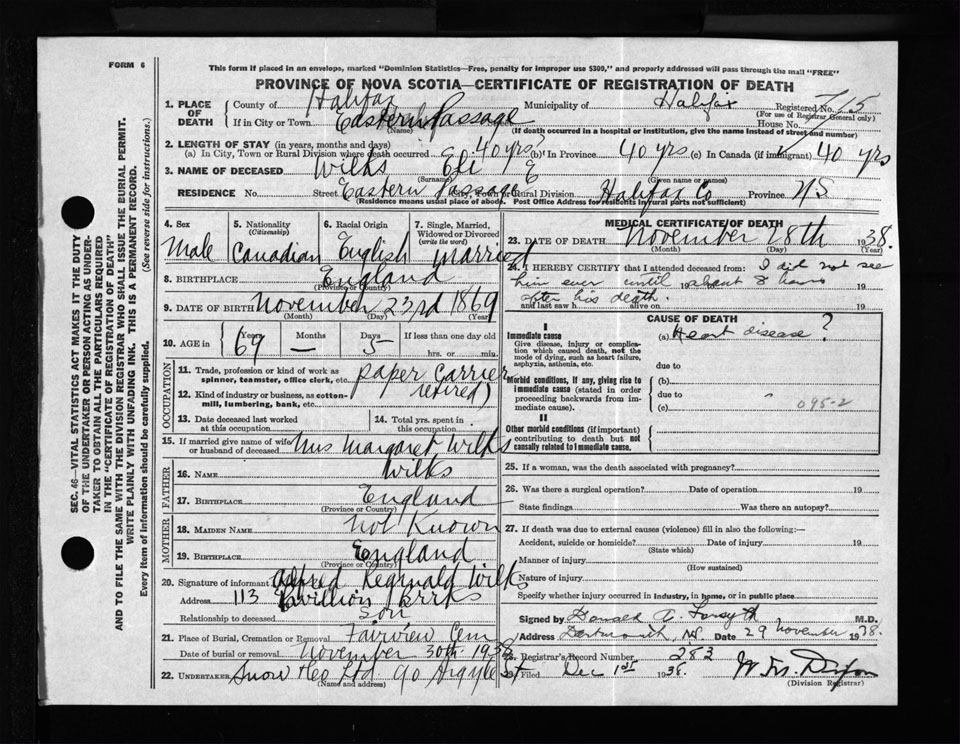 FORM 6
This form if placed in an envelope, marked "Dominion Statistics—Free, penalty for improper use $300," and properly addressed will pass through the mail "FREE"
PROVINCE OF NOVA SCOTIA—CERTIFICATE OF REGISTRATION OF DEATH
SEC. 46—VITAL STATISTICS ACT MAKES IT THE DUTY
OF THE UNDERTAKER OR PERSON ACTING AS UNDER-
TAKER TO OBTAIN ALL THE PARTICULARS REQUIRED
IN THE "CERTIFICATE OF REGISTRATION OF DEATH"
AND TO FILE THE SAME WITH THE DIVISION REGISTRAR WHO SHALL ISSUE THE BURIAL PERMIT.
WRITE PLAINLY WITH UNFADING INK. THIS IS A PERMANENT RECORD.
Every item of information should be carefully supplied. (See reverse side for instructions.)
1. PLACE OF DEATH County of Halifax Municipality of Halifax Registered No. 715
(For use of Registrar General only)
If in City or Town Eastern Passage House No.
(Name) (If death occurred in a hospital or institution, give the name instead of street and number)
2. LENGTH OF STAY (in years, months and days)
(a) In City, Town or Rural Division where death occurred 40 yrs? (b) In Province 40 yrs (c) In Canada (if immigrant) 40 yrs
3. NAME OF DECEASED Wilks Eli E
(Surname) (Given name or names)
RESIDENCE No. Street Eastern Passage City, Town or Rural Division Halifax Co Province N S
(Residence means usual place of abode. Post Office Address for residents in rural parts not sufficient)
4. Sex 5. Nationality 6. Racial Origin 7. Single, Married,
(Citizenship) Widowed or Divorced
(write the word)
Male Canadian English Married
8. BIRTHPLACE England
(Province or Country)
9. DATE OF BIRTH November 23rd 1869
(Month) (Day) (Year)
10. AGE in Years Months Days If less than one day old
69 — 5 hrs. or min.
OCCUPATION
11. Trade, profession or kind of work as
spinner, teamster, office clerk, etc. paper carrier
12. Kind of industry or business, as cotton-
mill, lumbering, bank, etc. retired)
13. Date deceased last worked
at this occupation
14. Total yrs. spent in
this occupation
15. If married give name of wife
or husband of deceased Mrs Margaret Wilks
FATHER
16. NAME Wilks
17. BIRTHPLACE England
(Province or Country)
MOTHER
18. MAIDEN NAME Not Known
19. BIRTHPLACE England
(Province or Country)
20. Signature of informant Alfred Reginald Wilks
Address 113
Relationship to deceased Son
21. Place of Burial, Cremation or Removal Fairview Cem
Date of burial or removal November 30th 1938
22. UNDERTAKER Snow & Co Ltd 90 Argyle St
(Name and address)
MEDICAL CERTIFICATE OF DEATH
23. DATE OF DEATH November 28th 1938.
(Month) (Day) (Year)
24. I HEREBY CERTIFY that I attended deceased from: I did not see
him ever until 19 about 8 hours 19
after his death.
and last saw h alive on 19
CAUSE OF DEATH
I
Immediate cause (a) Heart disease?
Give disease, injury or complica-
tion which caused death, not the
mode of dying, such as heart failure,
asphyxia, asthenia, etc.
due to
Morbid conditions, if any, giving rise to
immediate cause (stated in order
proceeding backwards from im-
mediate cause).
(b)
due to
(c) 095-2
II
Other morbid conditions (if important)
contributing to death but not
causally related to immediate cause.
25. If a woman, was the death associated with pregnancy?
26. Was there a surgical operation? Date of operation 19
State findings Was there an autopsy?
27. If death was due to external causes (violence) fill in also the following:—
Accident, suicide or homicide? Date of injury 19
(State which)
Manner of injury
(How sustained)
Nature of injury
Specify whether injury occurred in industry, in home, or in public place
Signed by Donald A. Forsyth M.D.
Address Dartmouth, NS. Date 29 November 1938.
28. Registrar's Record Number 283
Filed Dec 1st 1938.
(Division Registrar)